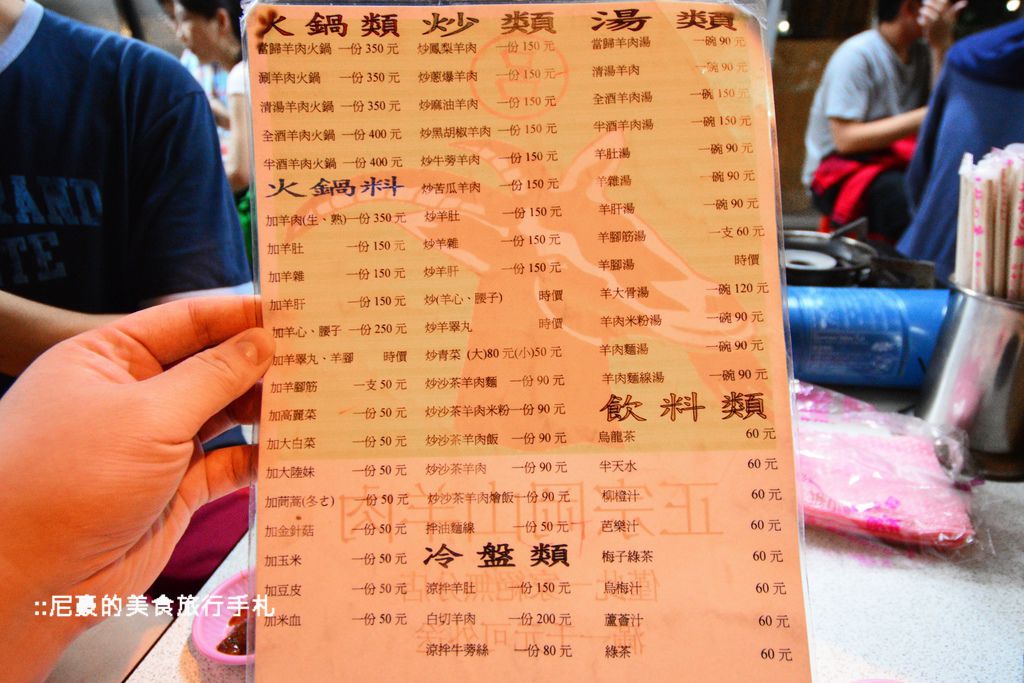 火鍋類
當歸羊肉火鍋 一份 350 元
涮羊肉火鍋 一份 350 元
清湯羊肉火鍋 一份 350 元
全酒羊肉火鍋 一份 400 元
半酒羊肉火鍋 一份 400 元
火鍋料
加羊肉(生、熟) 一份 350 元
加羊肚 一份 150 元
加羊雜 一份 150 元
加羊肝 一份 150 元
加羊心、腰子 一份 250 元
加羊睪丸、羊腳 時價
加羊腳筋 一支 50 元
加高麗菜 一份 50 元
加大白菜 一份 50 元
加大陸妹 一份 50 元
加茼蒿(冬ㄜ) 一份 50 元
加金針菇 一份 50 元
加玉米 一份 50 元
加豆皮 一份 50 元
加米血 一份 50 元
炒類
炒鳳梨羊肉 一份 150 元
炒蔥爆羊肉 一份 150 元
炒麻油羊肉 一份 150 元
炒黑胡椒羊肉 一份 150 元
炒牛蒡羊肉 一份 150 元
炒苦瓜羊肉 一份 150 元
炒羊肚 一份 150 元
炒羊雜 一份 150 元
炒羊肝 一份 150 元
炒(羊心、腰子) 時價
炒羊睪丸 時價
炒青菜 (大)80 元(小)50 元
炒沙茶羊肉麵 一份 90 元
炒沙茶羊肉米粉 一份 90 元
炒沙茶羊肉飯 一份 90 元
炒沙茶羊肉 一份 90 元
炒沙茶羊肉燴飯 一份 90 元
拌油麵線 一份 50 元
冷盤類
涼拌羊肚 一份 150 元
白切羊肉 一份 200 元
涼拌牛蒡絲 一份 80 元
湯類
當歸羊肉湯 一碗 90 元
清湯羊肉 一碗 90 元
全酒羊肉湯 一碗 150 元
半酒羊肉湯 一碗 150 元
羊肚湯 一碗 90 元
羊雜湯 一碗 90 元
羊肝湯 一碗 90 元
羊腳筋湯 一支 60 元
羊腳湯 時價
羊大骨湯 一碗 120 元
羊肉米粉湯 一碗 90 元
羊肉麵湯 一碗 90 元
羊肉麵線湯 一碗 90 元
飲料類
烏龍茶 60 元
半天水 60 元
柳橙汁 60 元
芭樂汁 60 元
梅子綠茶 60 元
烏梅汁 60 元
蘆薈汁 60 元
綠茶 60 元
正宗岡山羊肉
::尼豪的美食旅行手札